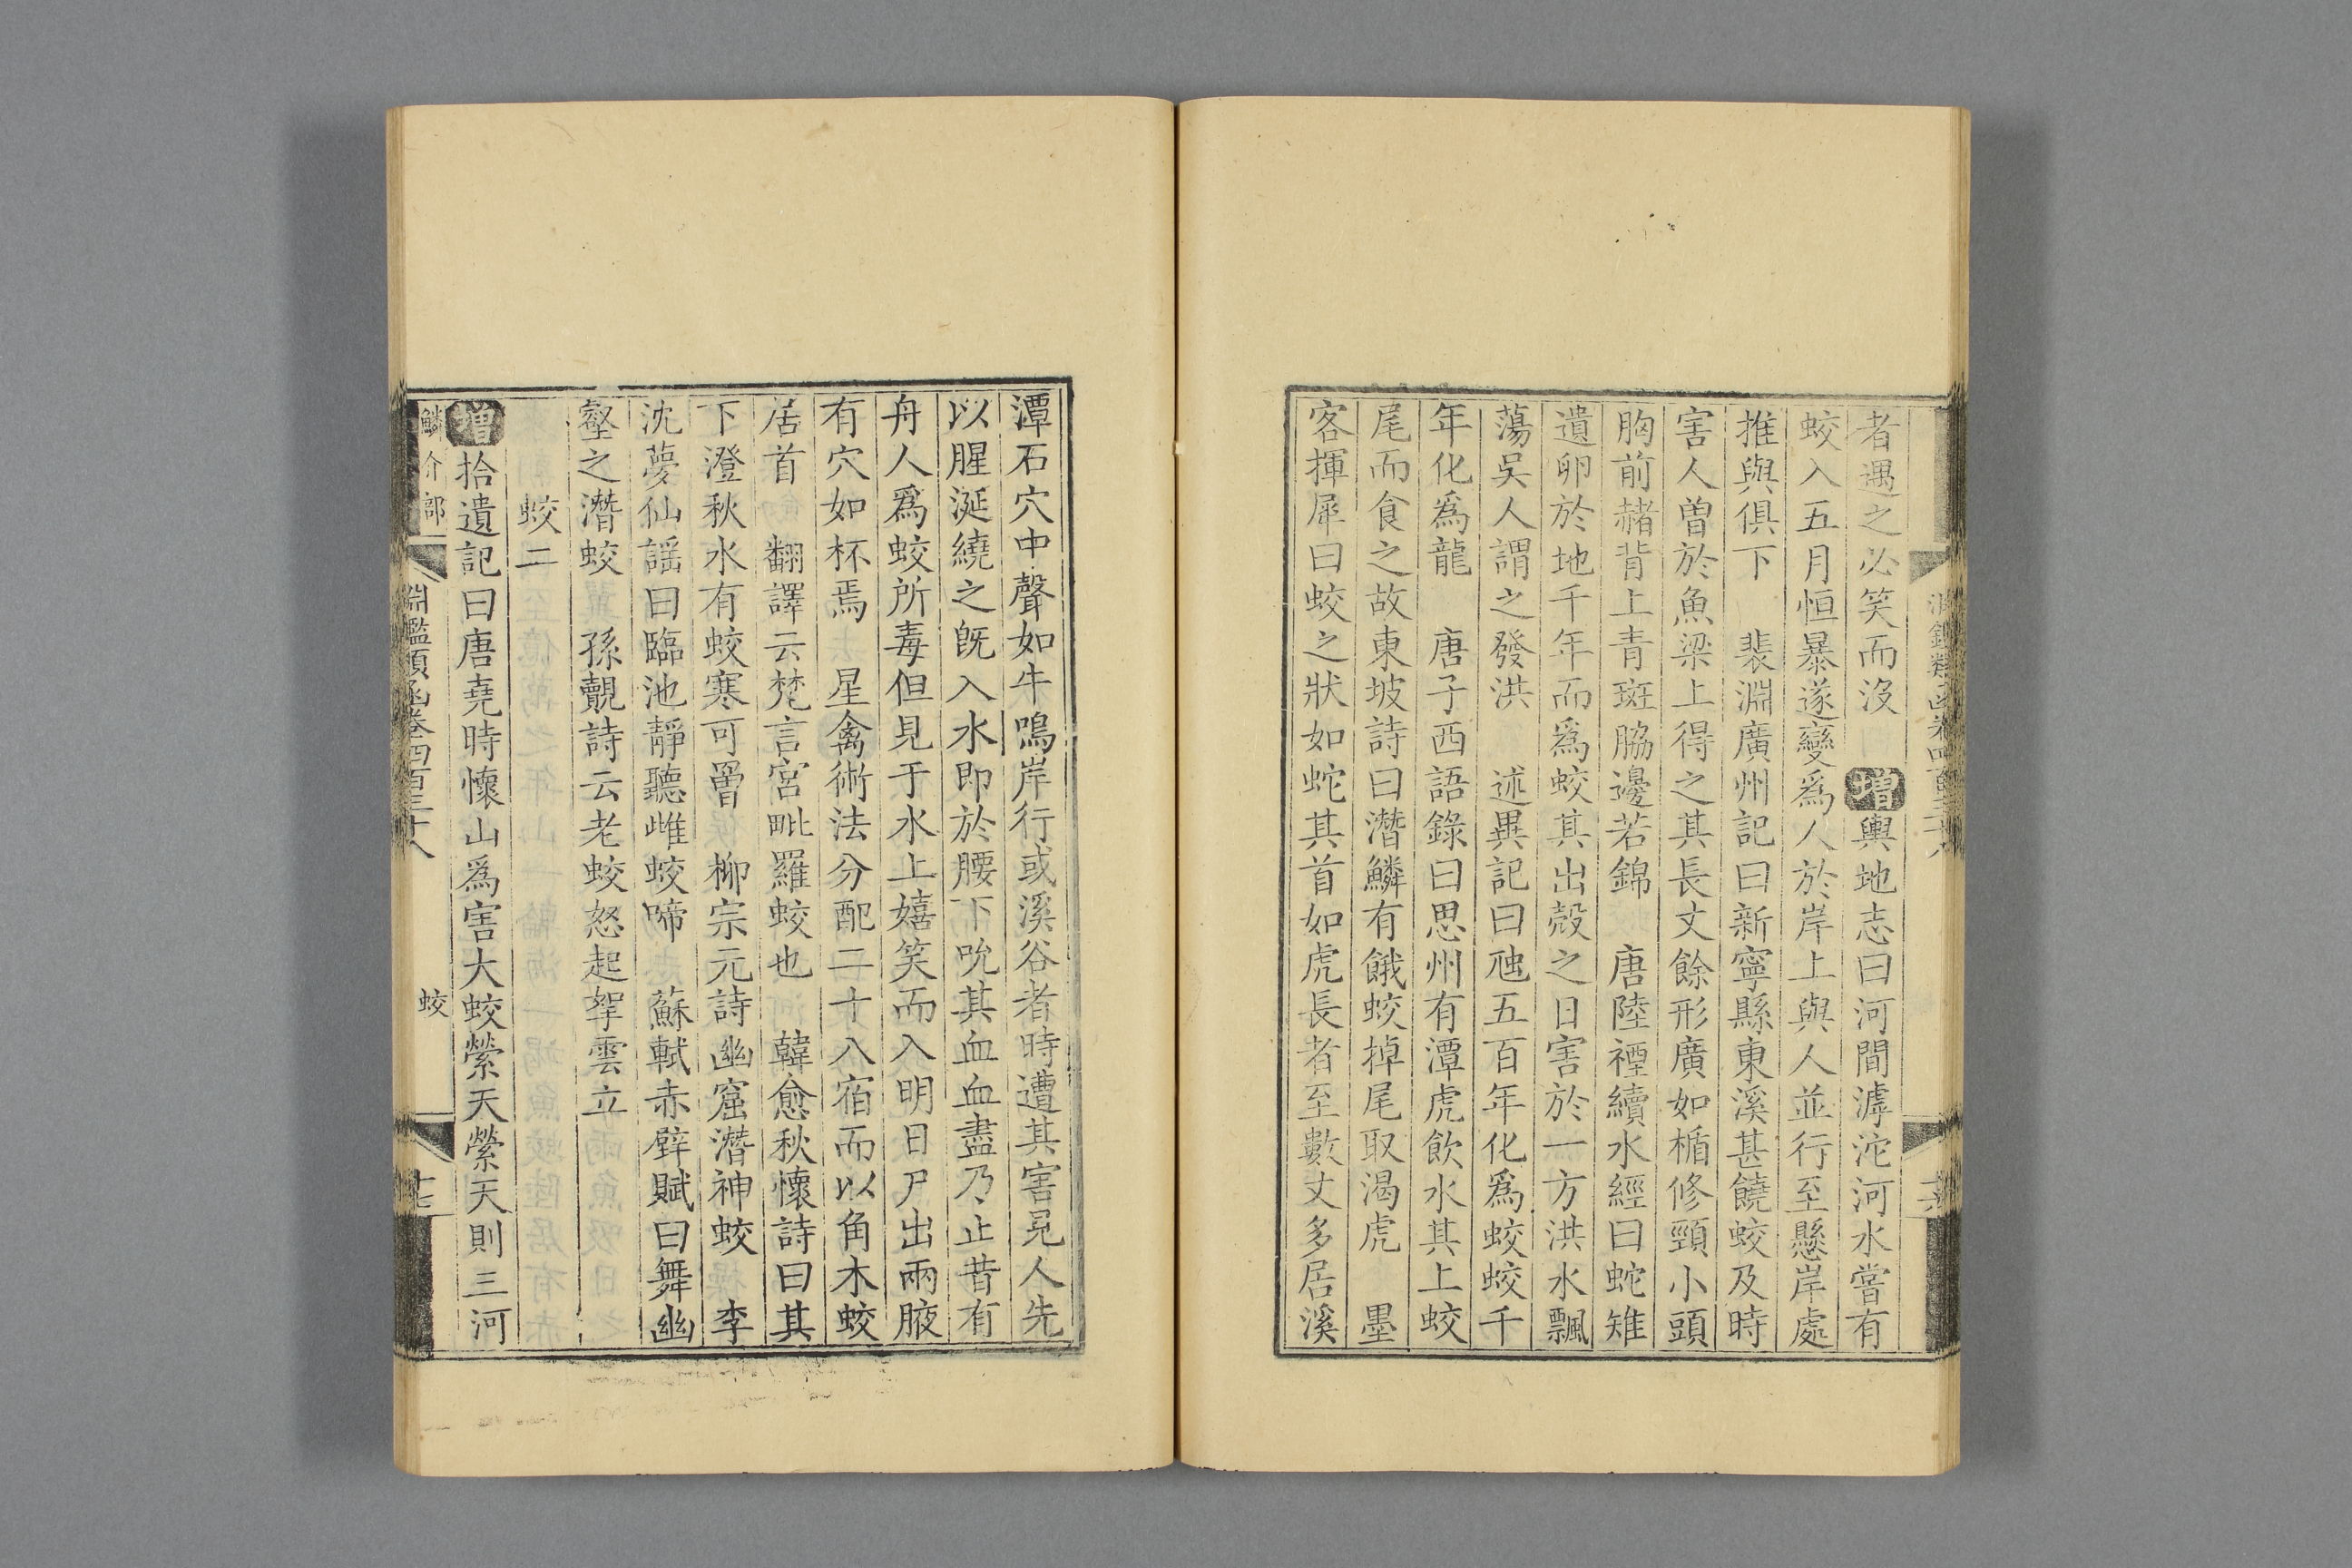 者遇之必笑而沒　增輿地志曰河間滹沱河水嘗有
蛟入五月恒暴遂變爲人於岸上與人並行至懸岸處
推與俱下　裴淵廣州記曰新寧縣東溪甚饒蛟及時
害人曾於魚梁上得之其長丈餘形廣如楯修頸小頭
胸前赭背上青斑脇邊若錦　唐陸禋續水經曰蛇雉
遺卵於地千年而爲蛟其出殼之日害於一方洪水飄
蕩吳人謂之發洪　述異記曰虺五百年化爲蛟蛟千
年化爲龍　唐子西語錄曰思州有潭虎飲水其上蛟
尾而食之故東坡詩曰潛鱗有餓蛟掉尾取渴虎　墨
客揮犀曰蛟之狀如蛇其首如虎長者至數丈多居溪
潭石穴中聲如牛鳴岸行或溪谷者時遭其害見人先
以腥涎繞之旣入水即於腰下吮其血血盡乃止昔有
舟人爲蛟所毒但見于水上嬉笑而入明日尸出兩腋
有穴如杯焉　星禽術法分配二十八宿而以角木蛟
居首　翻譯云梵言宮毗羅蛟也　韓愈秋懷詩曰其
下澄秋水有蛟寒可罾　柳宗元詩幽窟潛神蛟　李
沈夢仙謡曰臨池靜聽雌蛟啼　蘇軾赤壁賦曰舞幽
壑之潛蛟　孫覿詩云老蛟怒起挐雲立
蛟二
增拾遺記曰唐堯時懷山爲害大蛟縈天縈天則三河
鱗介部
淵鑑類函卷四百三十八
蛟
十七